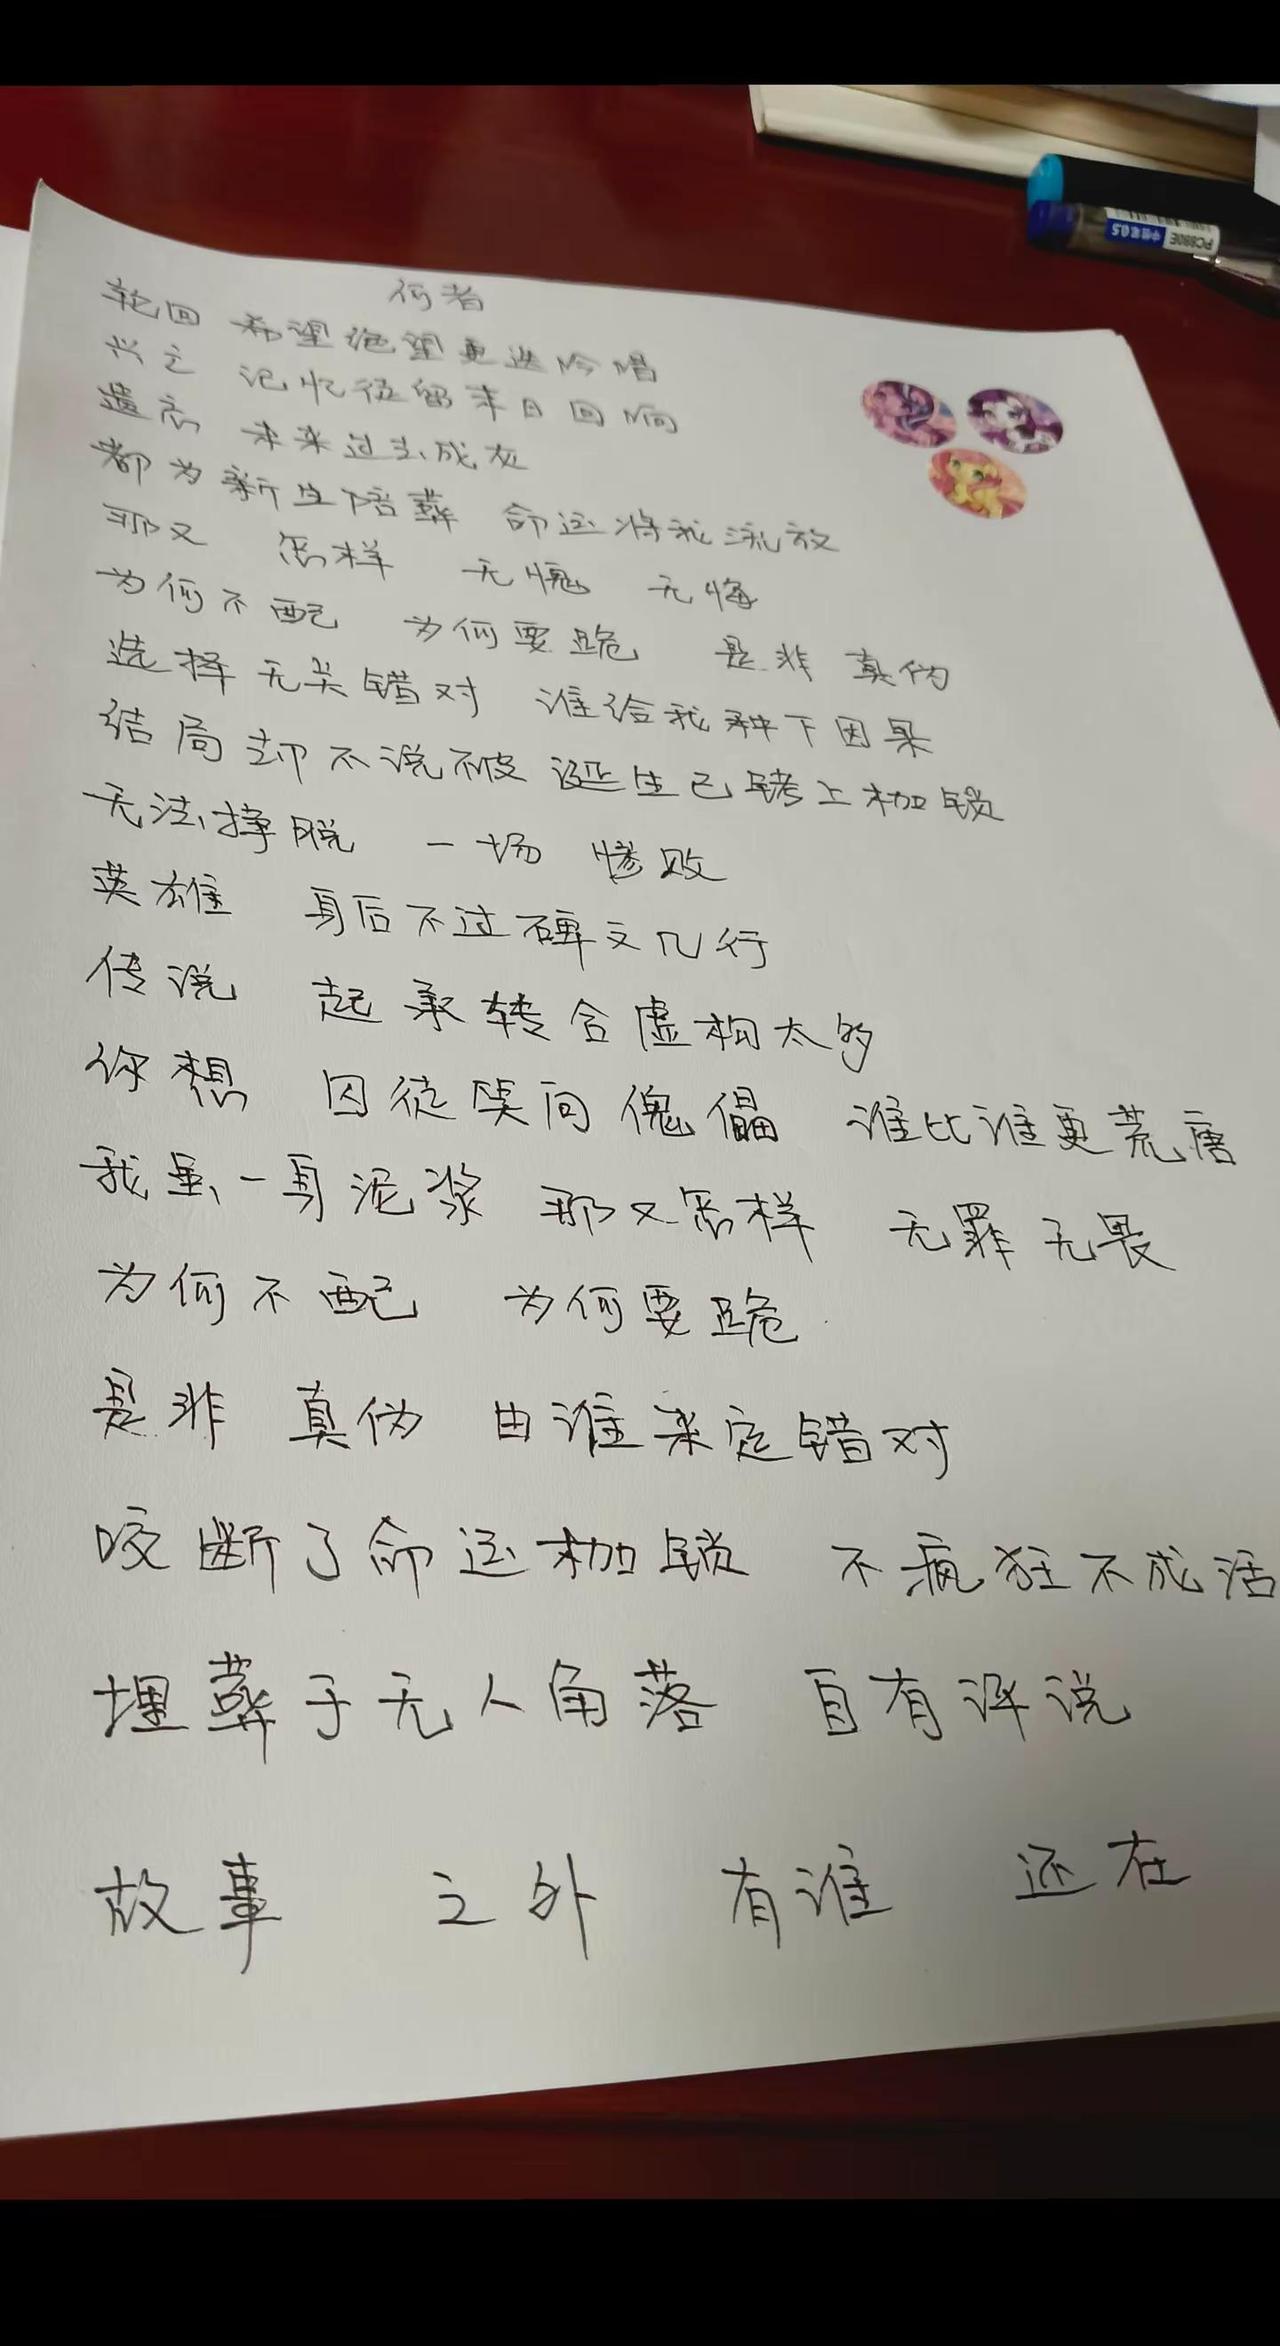 何者
轮回 希望绝望更迭吟唱
兴亡 记忆徒留末日回响
遗忘 未来过去成灰
都为新生陪葬 命运将我流放
那又 怎样 无愧 无悔
为何不配 为何要跪 是非 真伪
选择无关错对 谁给我种下因果
结局却不说破 诞生已铐上枷锁
无法挣脱 一场 惨败
英雄 身后不过碑文几行
传说 起承转合虚构太多
你想 囚徒笑问傀儡 谁比谁更荒唐
我虽一身泥浆 那又怎样 无罪无畏
为何不配 为何要跪
是非 真伪 由谁来定错对
咬断了命运枷锁 不疯狂不成活
埋葬于无人角落 自有评说
故事 之外 有谁 还在
PC880E 中性笔0.5